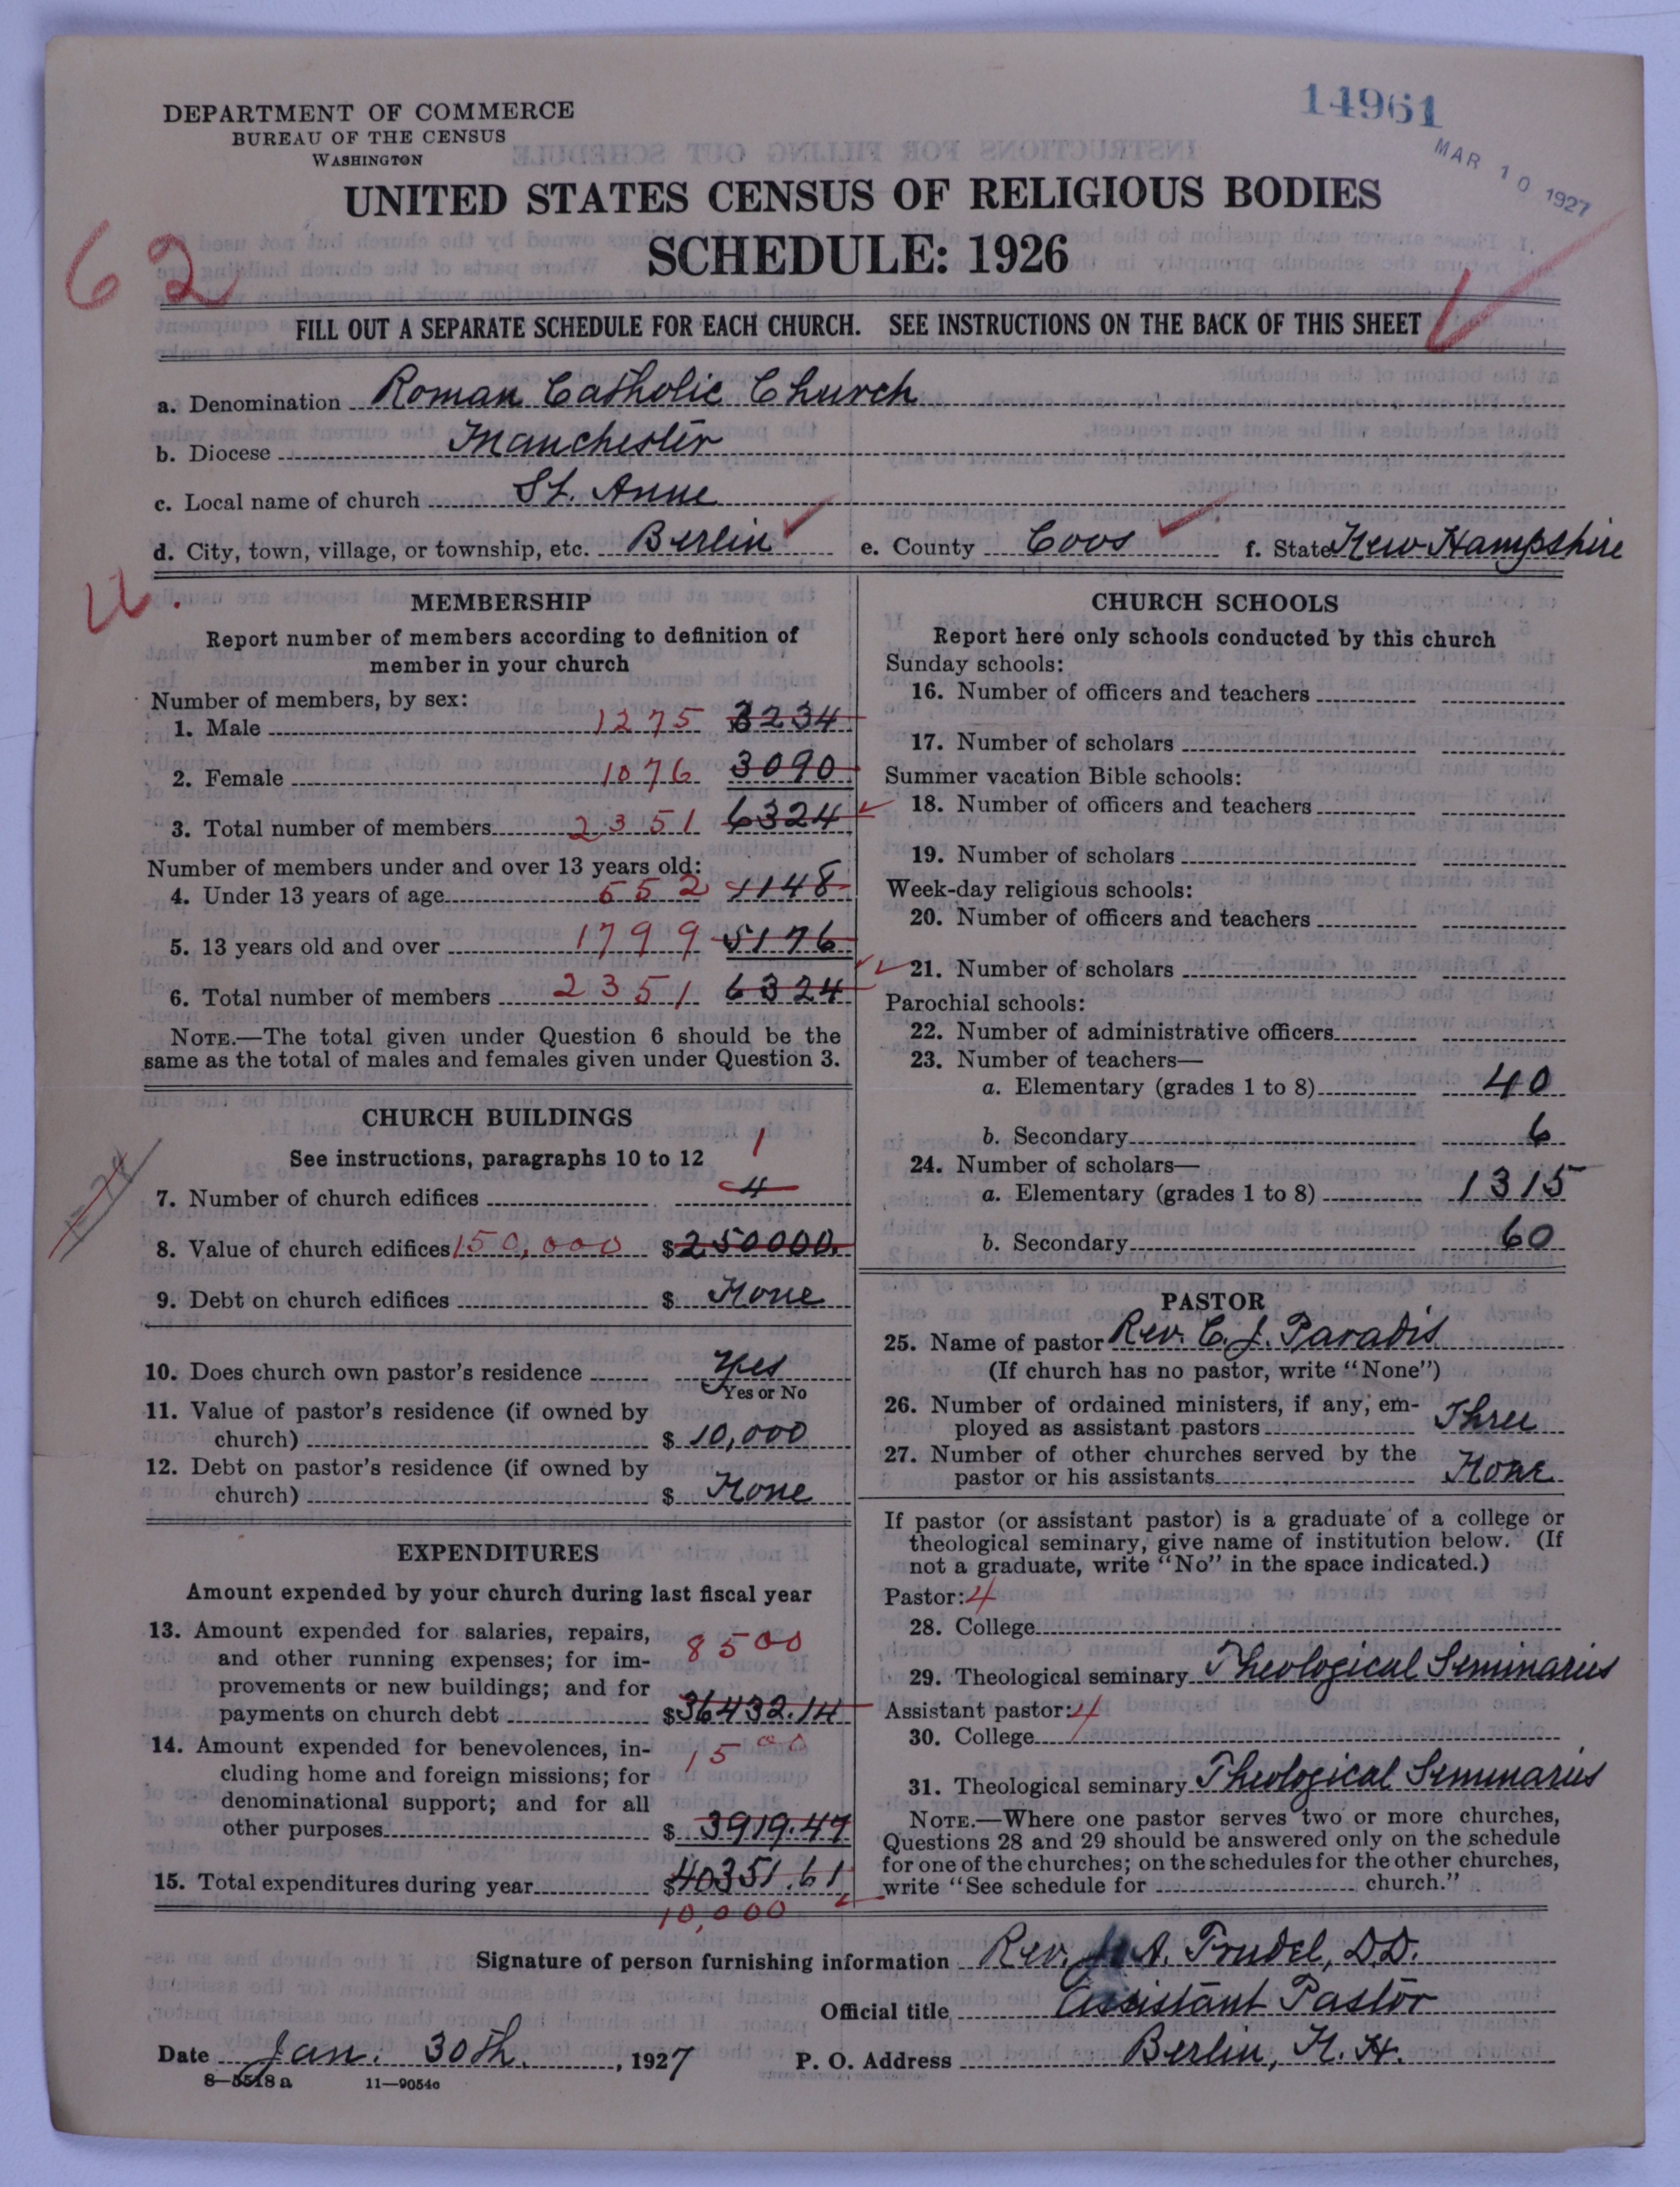 14961
MAR 10 1927
DEPARTMENT OF COMMERCE
BUREAU OF THE CENSUS
WASHINGTON
UNITED STATES CENSUS OF RELIGIOUS BODIES
SCHEDULE: 1926
62
FILL OUT A SEPARATE SCHEDULE FOR EACH CHURCH. SEE INSTRUCTIONS ON THE BACK OF THIS SHEET
a. Denomination Roman Catholic Church
b. Diocese Manchester
c. Local name of church St. Anne
d. City, town, village, or township, etc. Berlin e. County Coos f. State New Hampshire
MEMBERSHIP
Report number of members according to definition of
member in your church
Number of members, by sex:
1. Male 1275 3234
2. Female 1076 3090
3. Total number of members 2351 6324
Number of members under and over 13 years old:
4. Under 13 years of age 552 1148
5. 13 years old and over 1799 5176
6. Total number of members 2351 6324
NOTE.—The total given under Question 6 should be the
same as the total of males and females given under Question 3.
CHURCH BUILDINGS
See instructions, paragraphs 10 to 12
1
7. Number of church edifices 4
8. Value of church edifices 150,000 $250000.
9. Debt on church edifices $ None
10. Does church own pastor's residence Yes
Yes or No
11. Value of pastor's residence (if owned by
church) $ 10,000
12. Debt on pastor's residence (if owned by
church) $ None
EXPENDITURES
Amount expended by your church during last fiscal year
13. Amount expended for salaries, repairs,
and other running expenses; for im-
8500
provements or new buildings; and for
payments on church debt $36432.14
14. Amount expended for benevolences, in-
1500
cluding home and foreign missions; for
denominational support; and for all
other purposes $ 3919.47
15. Total expenditures during year $40351.61
10,000
CHURCH SCHOOLS
Report here only schools conducted by this church
Sunday schools:
16. Number of officers and teachers
17. Number of scholars
Summer vacation Bible schools:
18. Number of officers and teachers
19. Number of scholars
Week-day religious schools:
20. Number of officers and teachers
21. Number of scholars
Parochial schools:
22. Number of administrative officers
23. Number of teachers—
a. Elementary (grades 1 to 8) 40
b. Secondary 6
24. Number of scholars—
a. Elementary (grades 1 to 8) 1315
b. Secondary 60
PASTOR
25. Name of pastor Rev. C. J. Paradis
(If church has no pastor, write "None")
26. Number of ordained ministers, if any, em-
ployed as assistant pastors Three
27. Number of other churches served by the
pastor or his assistants None
If pastor (or assistant pastor) is a graduate of a college or
theological seminary, give name of institution below. (If
not a graduate, write "No" in the space indicated.)
Pastor: 4
28. College
29. Theological seminary Theological Seminaries
Assistant pastor: 4
30. College
31. Theological seminary Theological Seminaries
NOTE.—Where one pastor serves two or more churches,
Questions 28 and 29 should be answered only on the schedule
for one of the churches; on the schedules for the other churches,
write "See schedule for church."
Signature of person furnishing information Rev. A. Trudel, D.D.
Official title Assistant Pastor
Date Jan. 30th, 1927 P. O. Address Berlin, N. H.
8—5518 a 11—9054c